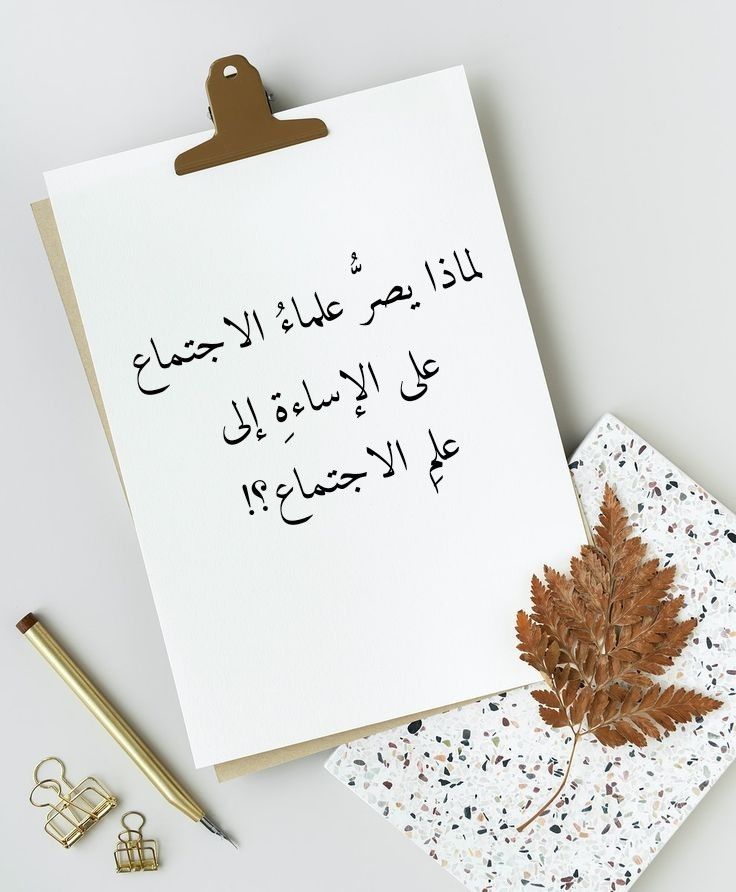 لماذا يصرُّ علماءُ الاجتماع
على الإساءةِ إلى
علمِ الاجتماع؟!